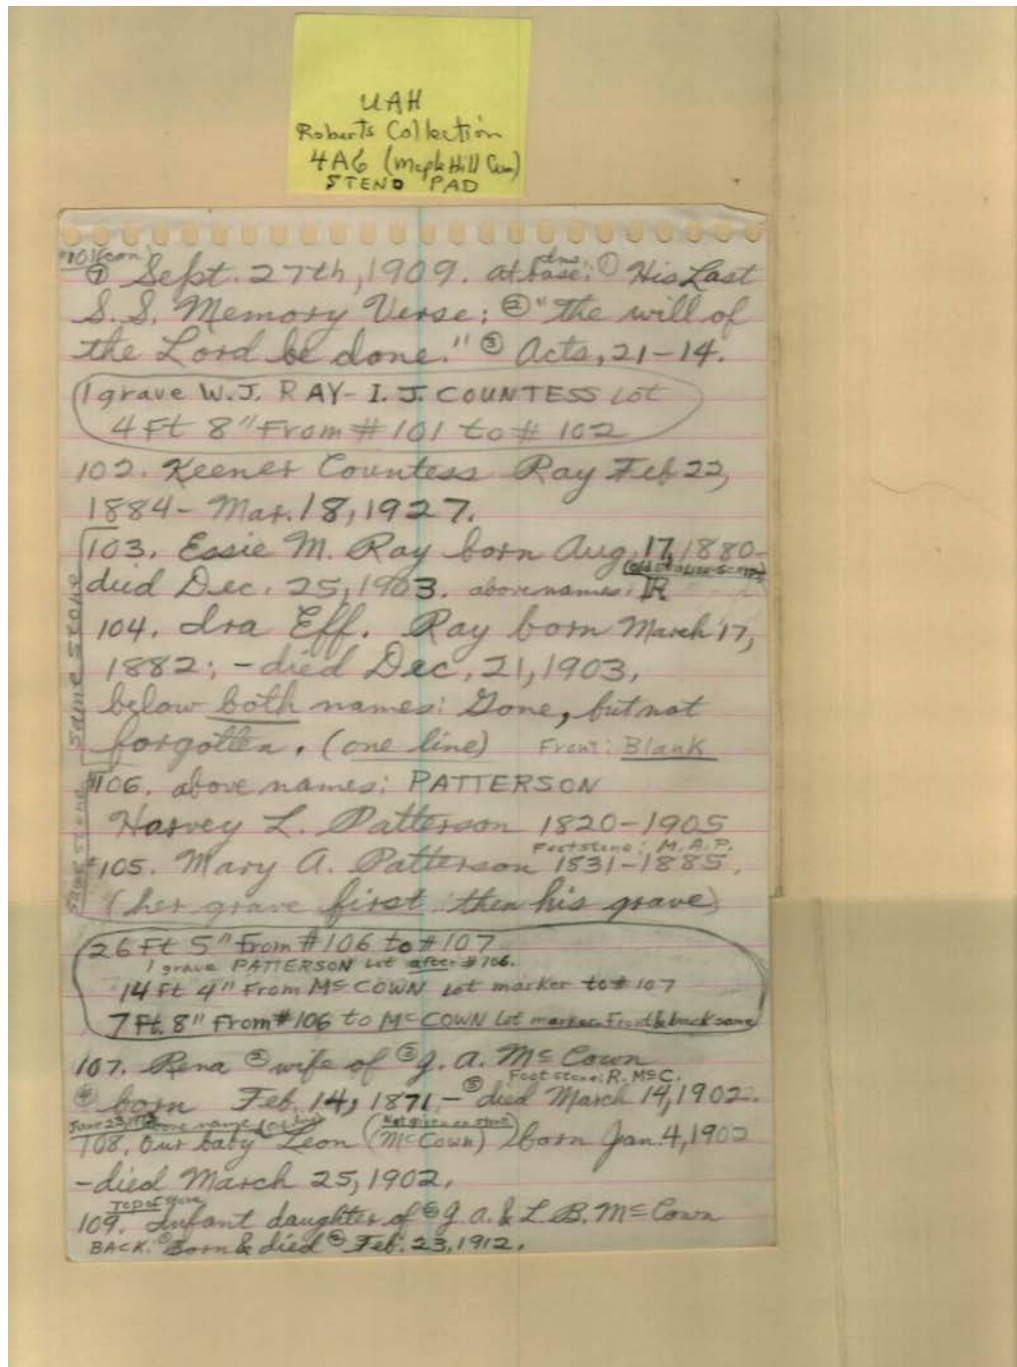 UAH
Roberts Collection
4A6 (Maple Hill Cem)
STENO PAD
#101 (con.)
⑦ Sept. 27th, 1909. at base: ① His Last
S.S. Memory Verse; ② "The will of
the Lord be done." ③ Acts, 21-14.
1 grave W.J. RAY- I.J. COUNTESS Lot
4 Ft 8" From # 101 to # 102
102. Keener Countess Ray Feb 22,
1884- Mar. 18, 1927.
SAME STONE
103. Essie M. Ray born Aug. 17, 1880-
died Dec. 25, 1903. above names: R
104. Ira Eff. Ray born March 17,
1882; -died Dec. 21, 1903.
below both names: Gone, but not
forgotten. (one line) Front: Blank
same stone
#106. above names: PATTERSON
Harvey L. Patterson 1820-1905
Footstone: M.A.P.
#105. Mary A. Patterson 1831-1885.
(her grave first then his grave)
26 Ft 5" From # 106 to # 107
1 grave PATTERSON Lot after # 106.
14 Ft 4" From McCOWN Lot marker to # 107
7 Ft. 8" From # 106 to McCOWN Lot marker. Front & back same
107. Rena ② wife of ③ J. A. McCown
Foot stone: R. McC.
④ born Feb. 14, 1871,- ⑤ died March 14, 1902.
above name
Not given on stone
108. Our baby Leon (McCown) born Jan. 4, 1902
-died March 25, 1902.
Top of stone
109. Infant daughter of ② J. A. & L. B. McCown
BACK. ① Born & died ② Feb. 23, 1912.